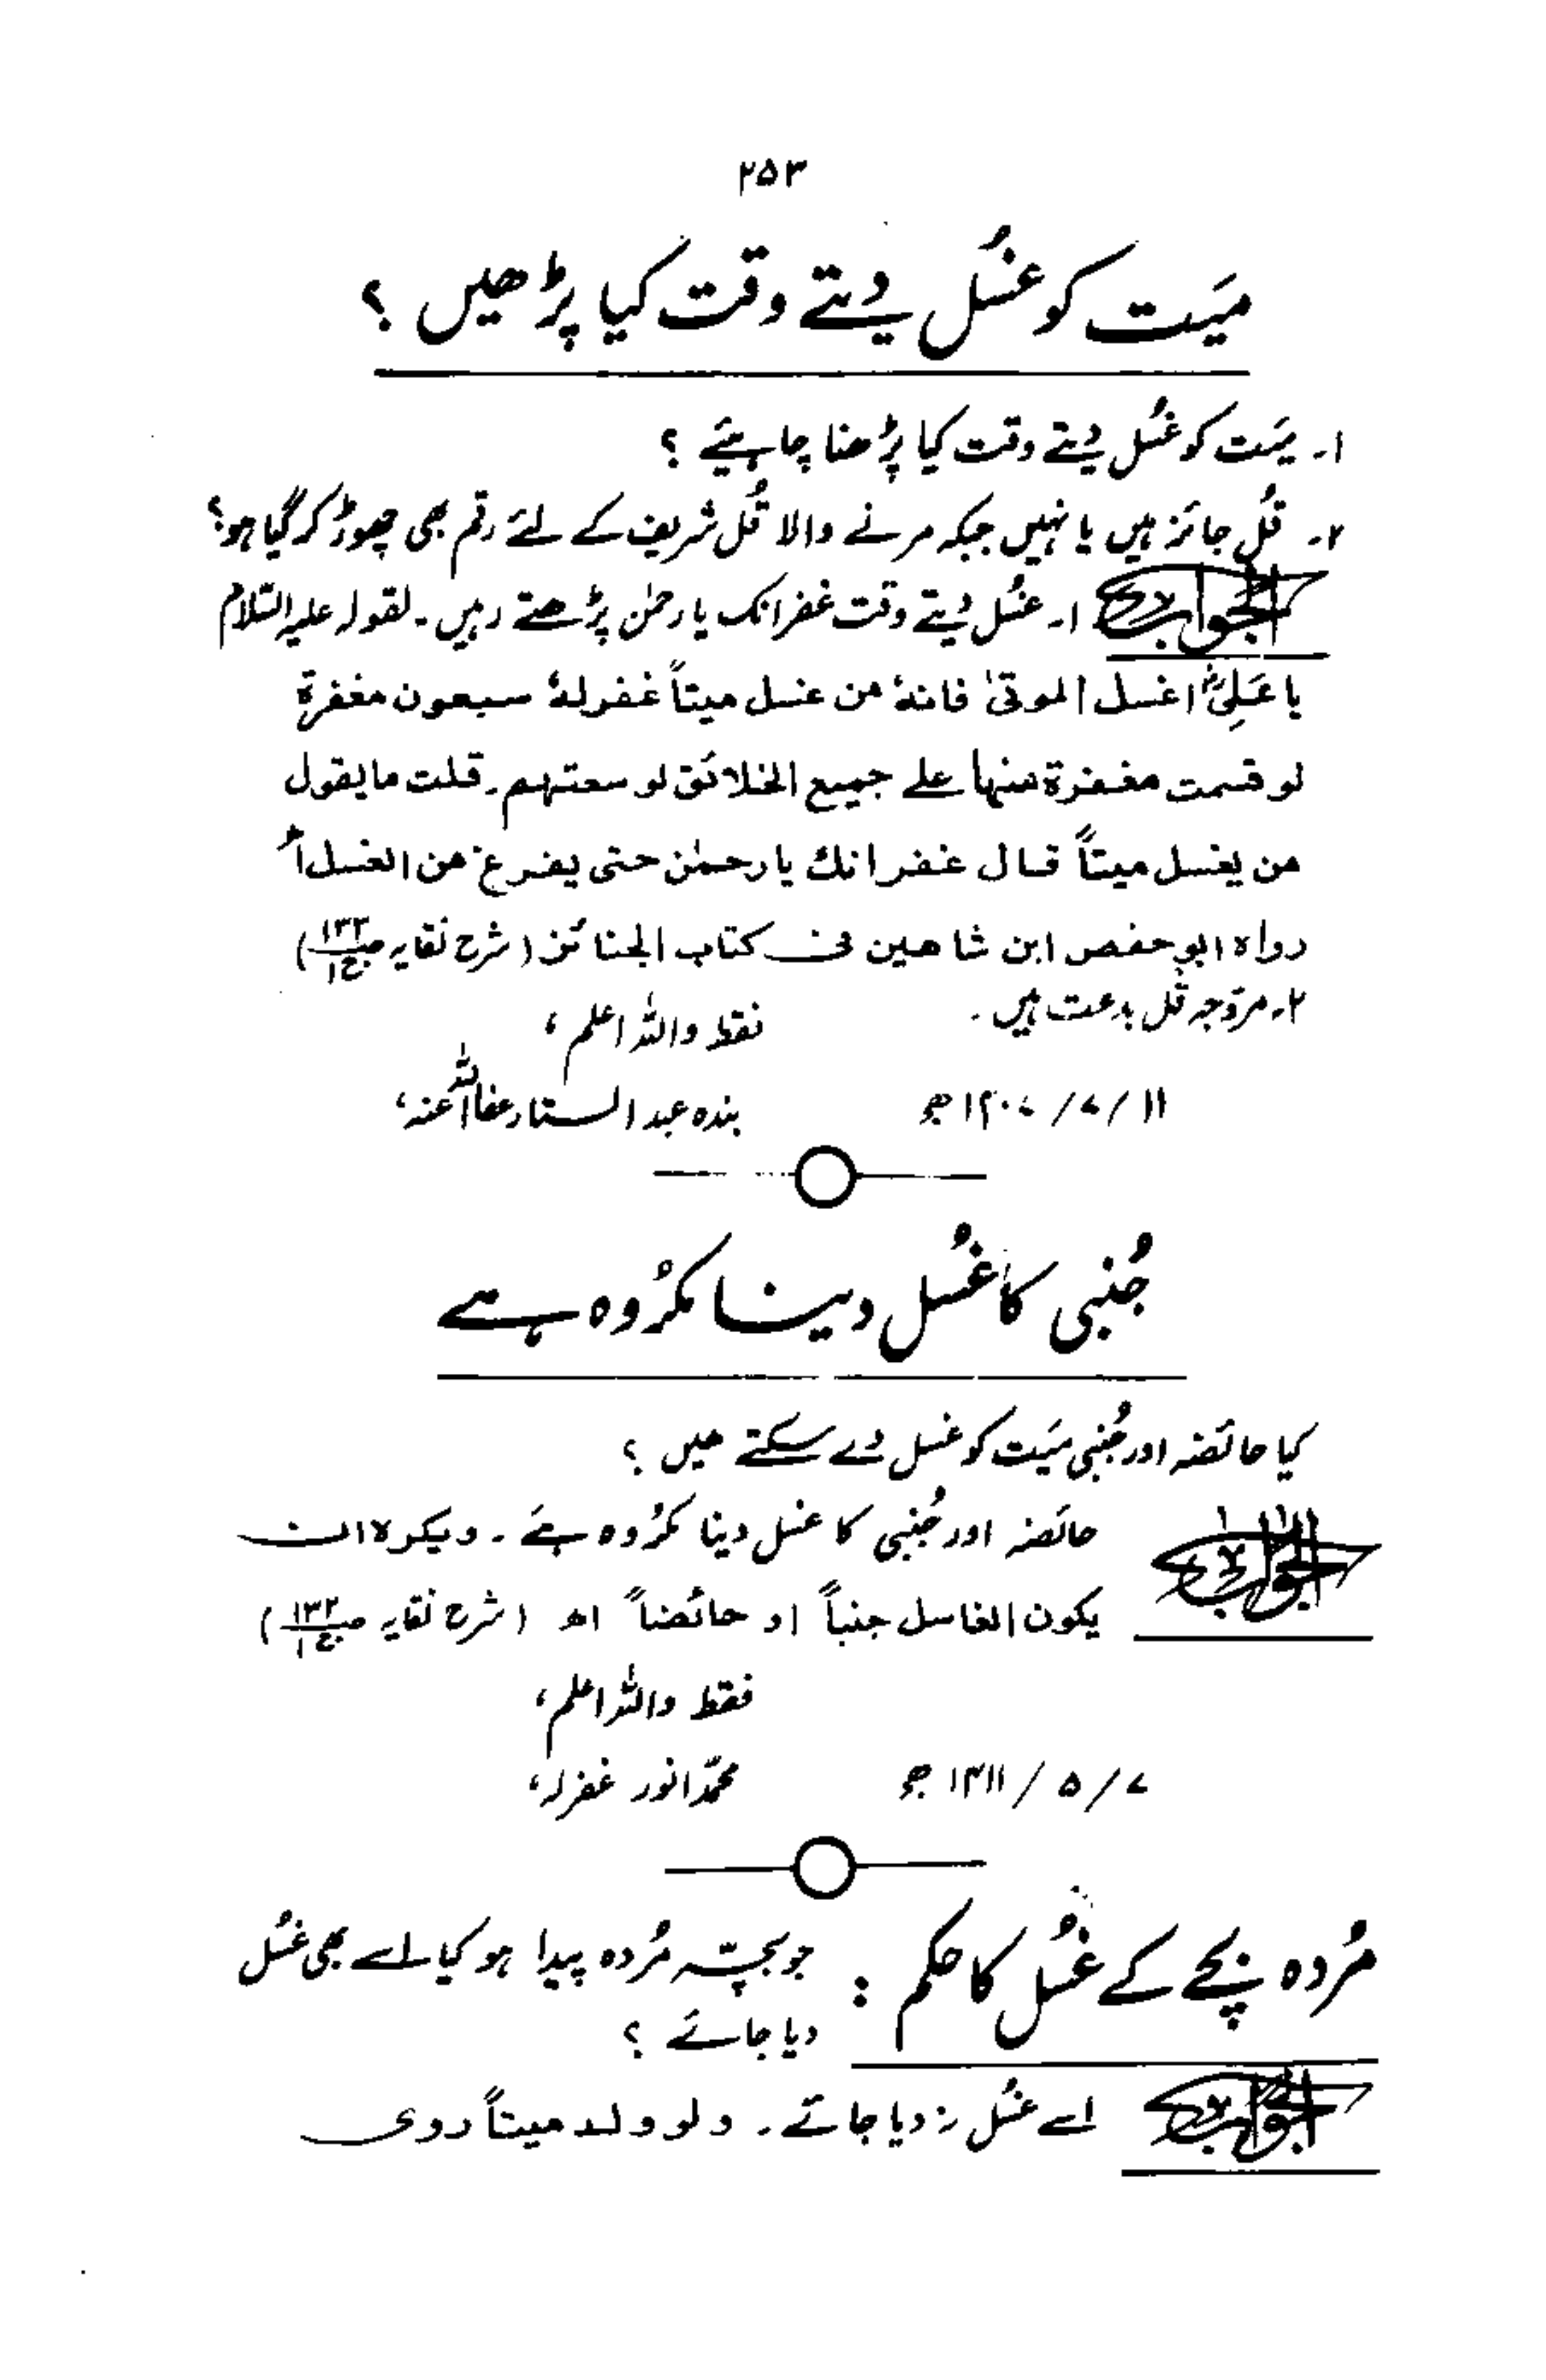 ۲۵۳
میّت کو غسُل دیتے وقت کیا پڑھیں ؟
۱۔ میّت کو غسُل دیتے وقت کیا پڑھنا چاہیئے ؟
۲۔ قُل جائز ہیں یا نہیں جبکہ مرنے والا قُل شریف کے لئے رقم بھی چھوڑ کر گیا ہو؟
الجواب ۱۔ غسُل دیتے وقت غفرانک یا رحمٰن پڑھتے رہیں۔ لقولہ علیہ السّلام
یا عَلِیُّ اغسل الموتیٰ فانہٗ من غسل میتاً غفرلہٗ سبعون مغفرۃ
لو قسمت مغفرۃ منہا علے جمیع الخلائق لوسعتہم۔ قلت ما یقول
من یغسل میتاً قال غفرانك یا رحمٰن حتی یفرغ من الغسل اھ
رواہ ابو حفص ابن شاھین فی کتاب الجنائز (شرح نقایہ ص۱۳۳ ج۱)
۲۔ مروّجہ قُل بدعت ہیں ۔
فقط واللہ اعلم ،
بندہ عبد الستار عفا اللہ عنہ،
۱۱/ ۷/ ۱۴۰۷ھ
جُنبی کا غسُل دینا مکرُوہ ہے
کیا حائضہ اور جُنبی میّت کو غسل دے سکتے ھیں ؟
الجواب حائضہ اور جُنبی کا غسل دینا مکرُوہ ہے ۔ ویکرہ ان
یکون الغاسل جنباً او حائضاً اھ (شرح نقایہ ص۱۳۲ ج۱)
فقط واللہ اعلم،
محمّد انور غفرلہ،
۷/ ۵/ ۱۴۱۱ھ
مُردہ بچے کے غسُل کا حکم : جو بچہ مُردہ پیدا ہو کیا اسے بھی غسُل
دیا جائے ؟
الجواب اسے غسُل نہ دیا جائے ۔ ولو ولد میتاً روی